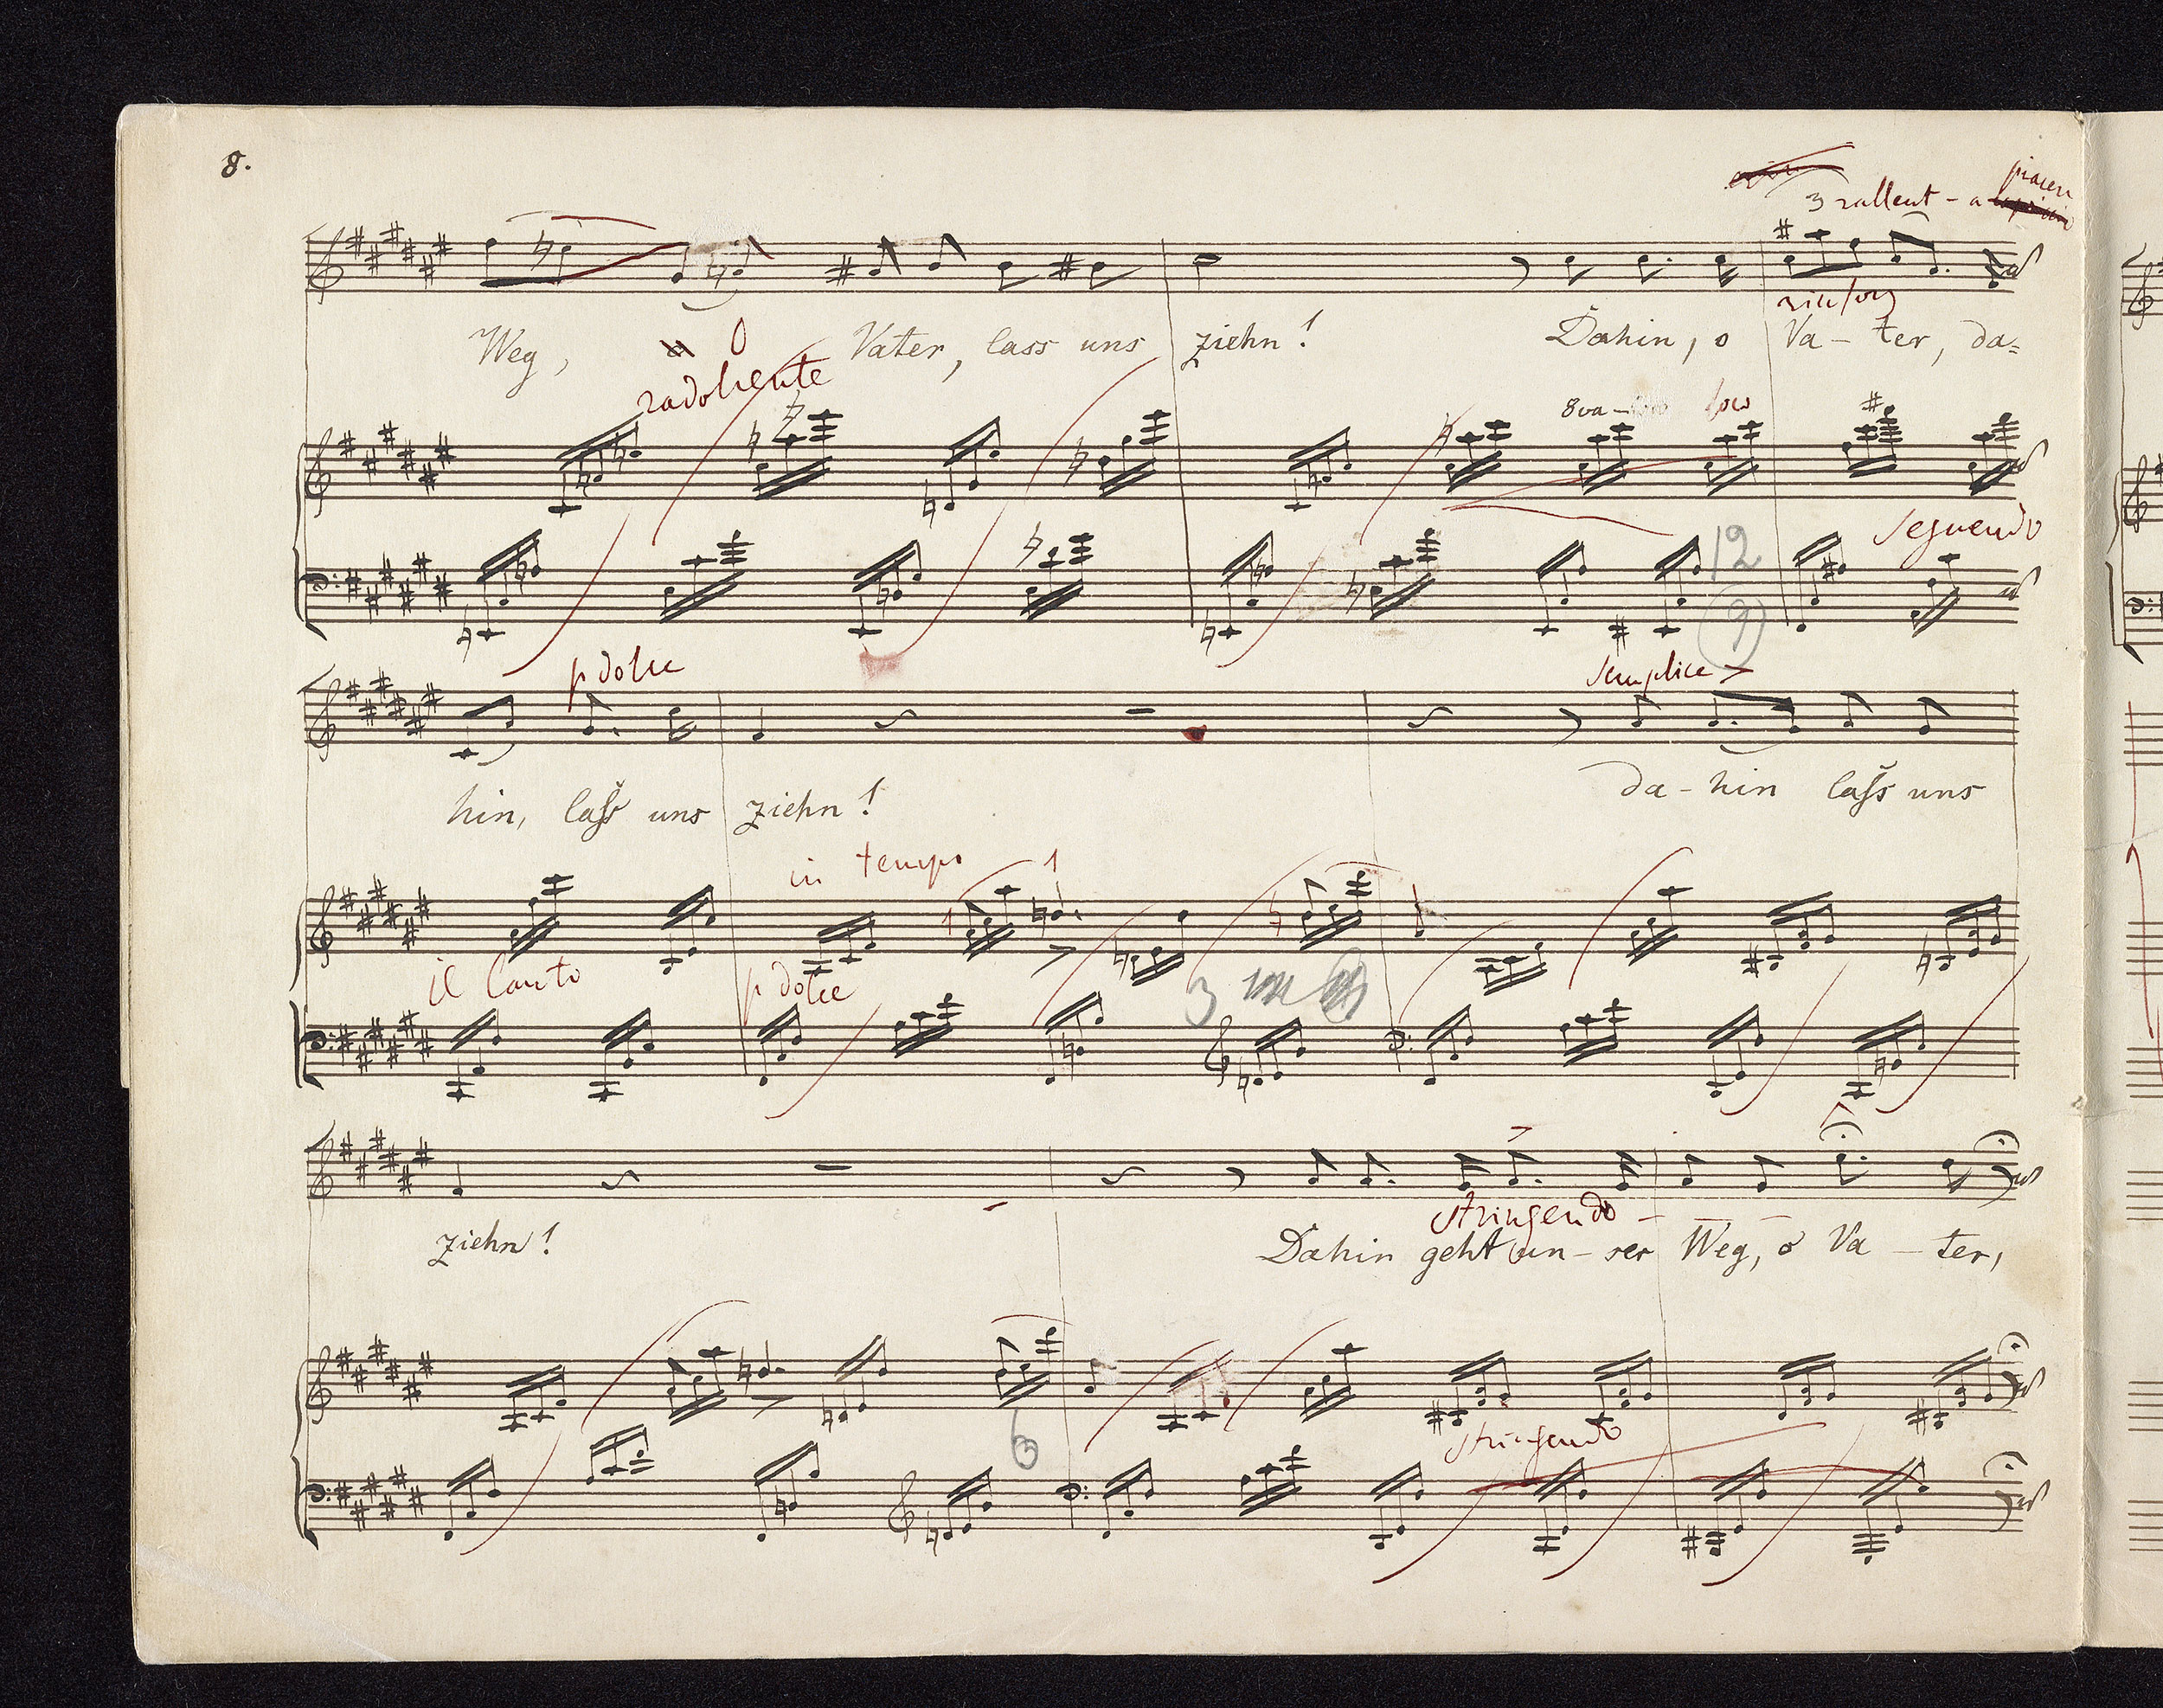 8.
3 rallent - a piacere
rinforz
Weg, O Vater, lass uns ziehn! Dahin, o Va - ter, da=
raddolcente
8va - loco
seguendo
12
9
p dolce semplice >
hin, laß uns ziehn! da - hin laß uns
in tempo 1
1
il canto p dolce 3
stringendo - - -
ziehn! Dahin geht un - ser Weg, o Va - ter,
6
stringendo